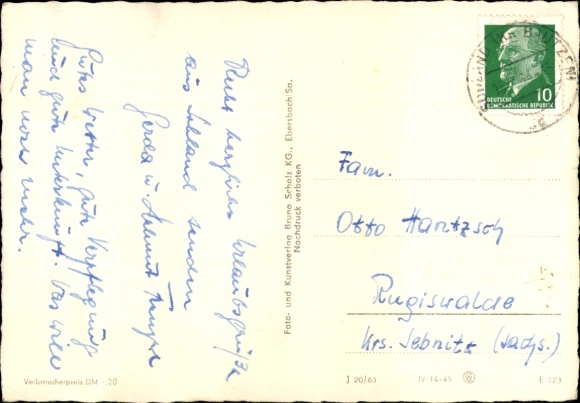 Recht herzliche Urlaubsgrüße
aus Sohland senden
Gerda u. Helmut
Gutes Wetter, gute Verpflegung
und gute Unterkunft. Was will
man noch mehr.
Foto- und Kunstverlag Bruno Scholz KG., Ebersbach-Sa.
Nachdruck verboten
BAUTZEN
10
DEUTSCHE
DEMOKRATISCHE REPUBLIK
Fam.
Otto Hantzsch
Rugiswalde
Krs. Sebnitz (Sachs.)
Verbraucherpreis DM -.20
J 20/63 IV-14-45 E 223